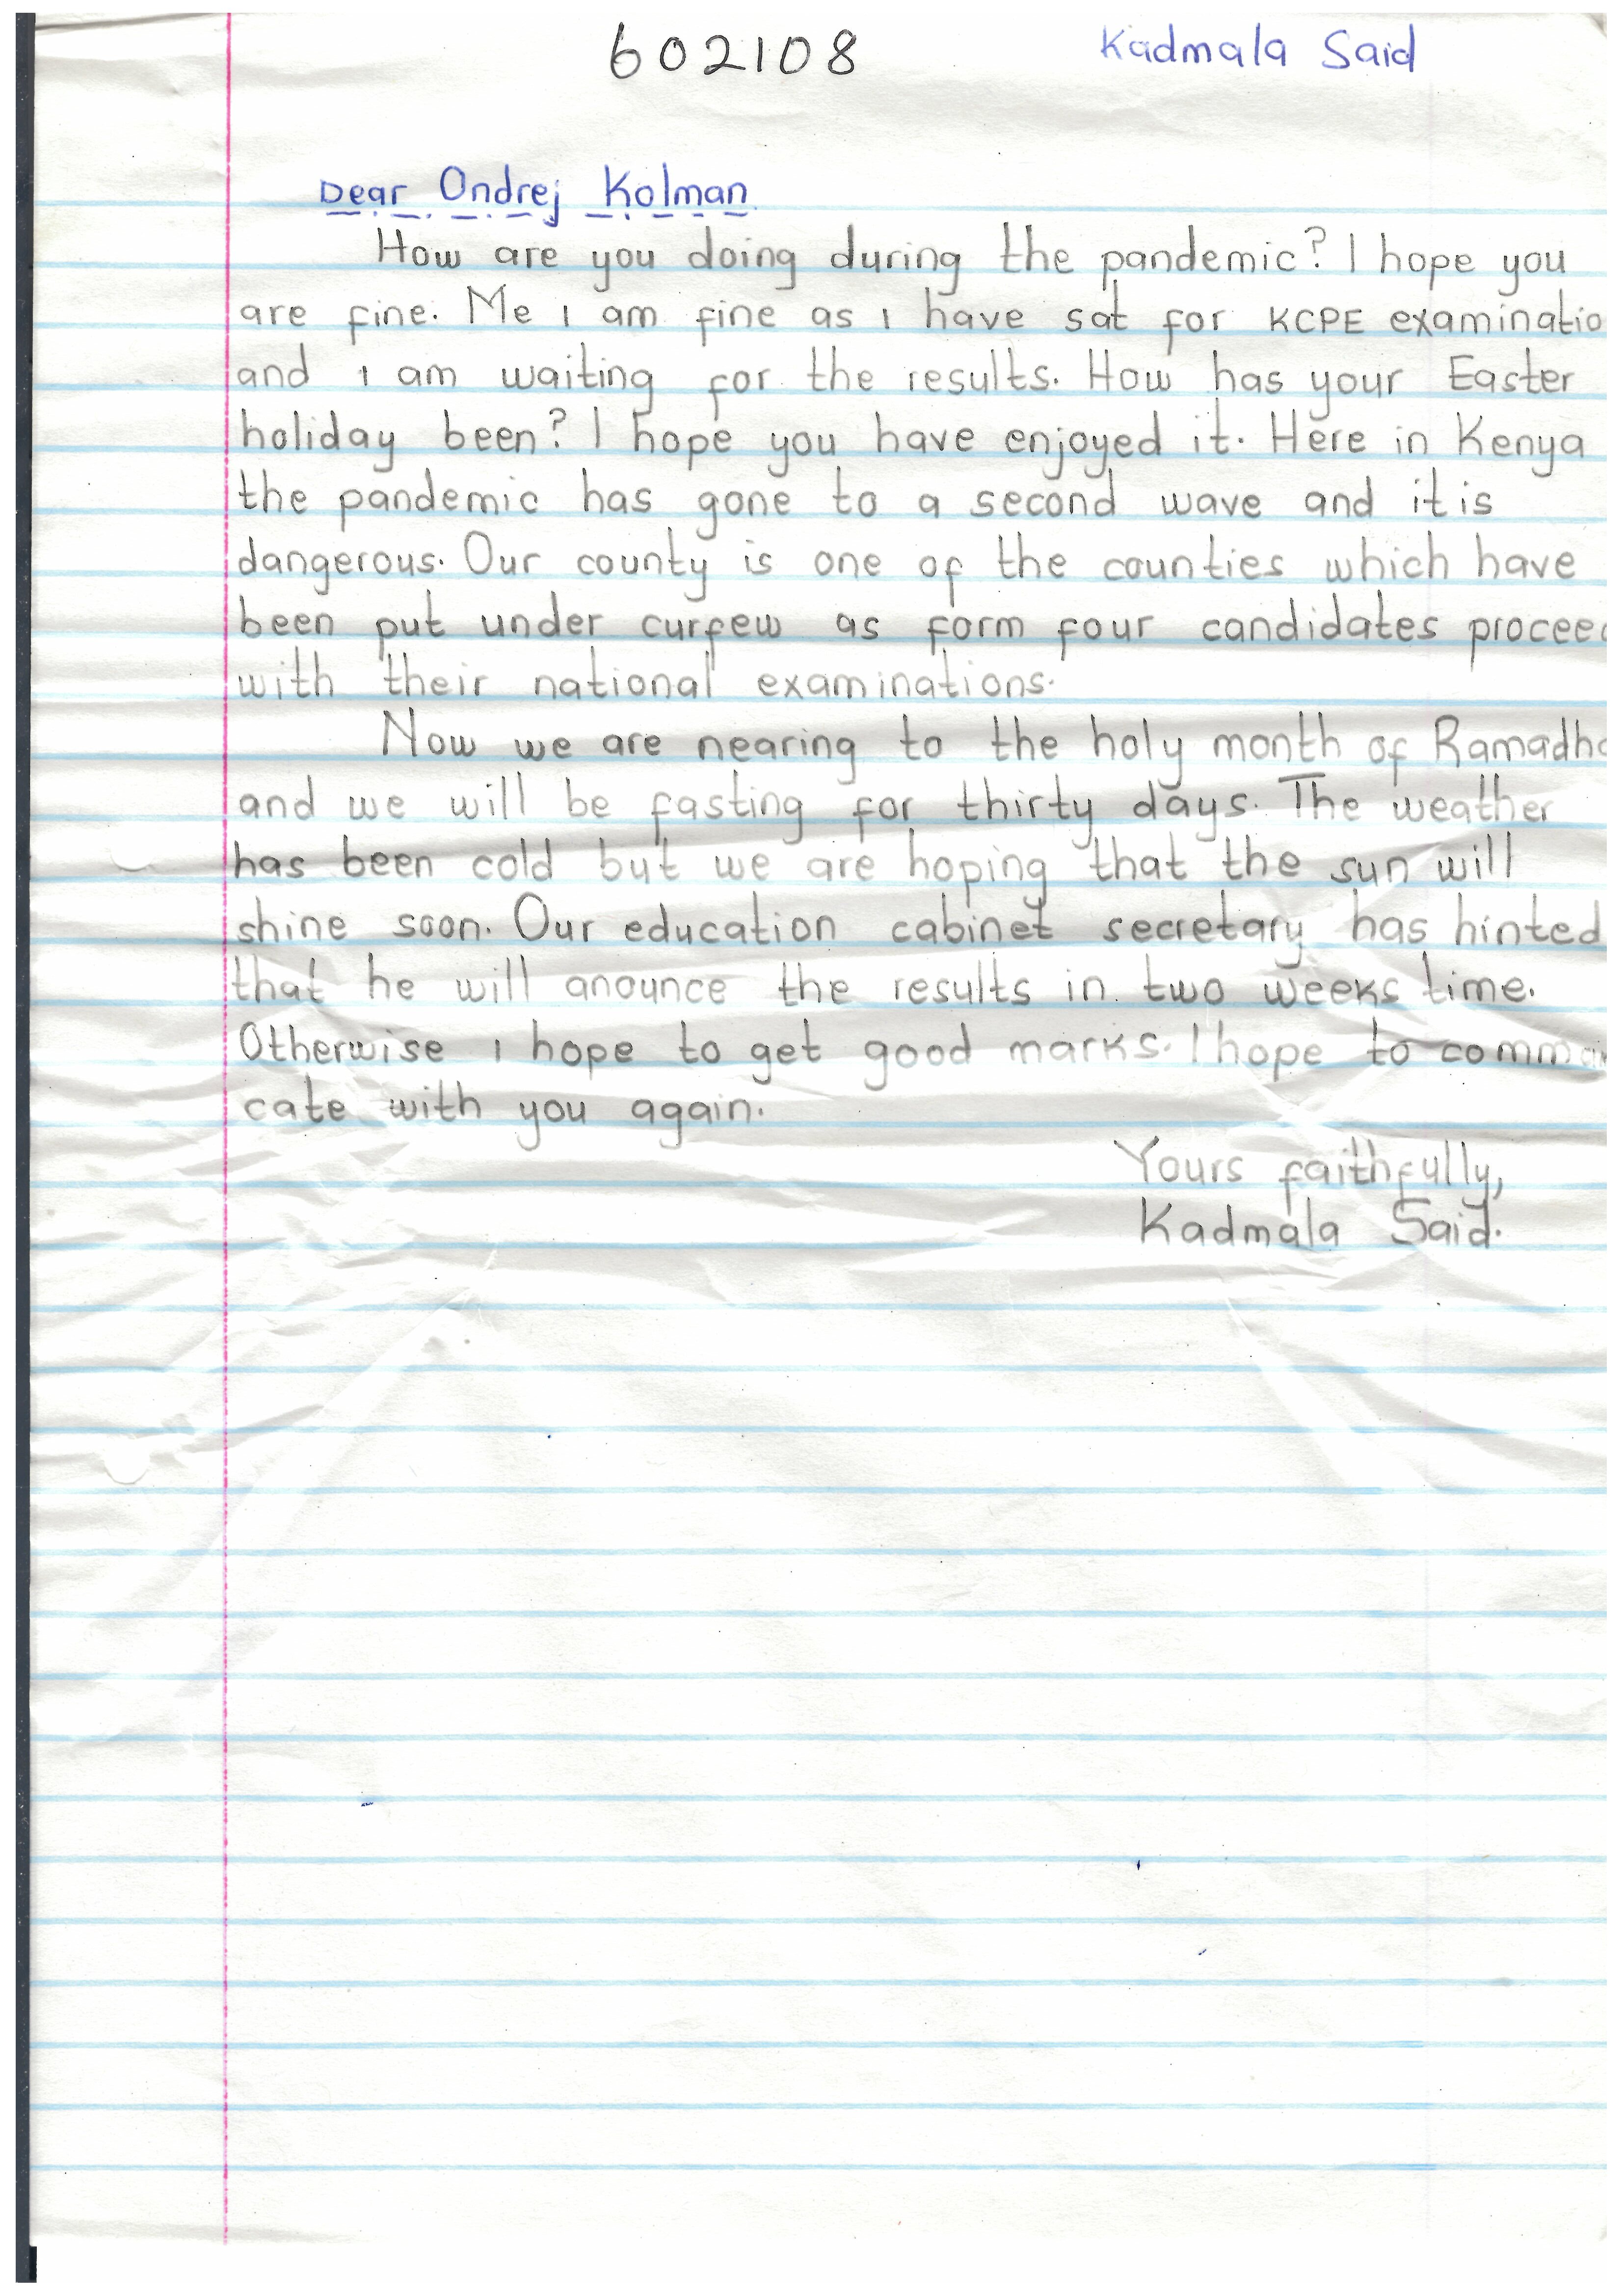 602108 Kadmala Said
Dear Ondrej Kolman
How are you doing during the pandemic? I hope you
are fine. Me I am fine as I have sat for KCPE examinatio
and I am waiting for the results. How has your Easter
holiday been? I hope you have enjoyed it. Here in Kenya
the pandemic has gone to a second wave and it is
dangerous. Our county is one of the counties which have
been put under curfew as form four candidates proceed
with their national examinations.
Now we are nearing to the holy month of Ramadha
and we will be fasting for thirty days. The weather
has been cold but we are hoping that the sun will
shine soon. Our education cabinet secretary has hinted
that he will anounce the results in two weeks time.
Otherwise I hope to get good marks. I hope to
cate with you again.
Yours faithfully,
Kadmala Said.